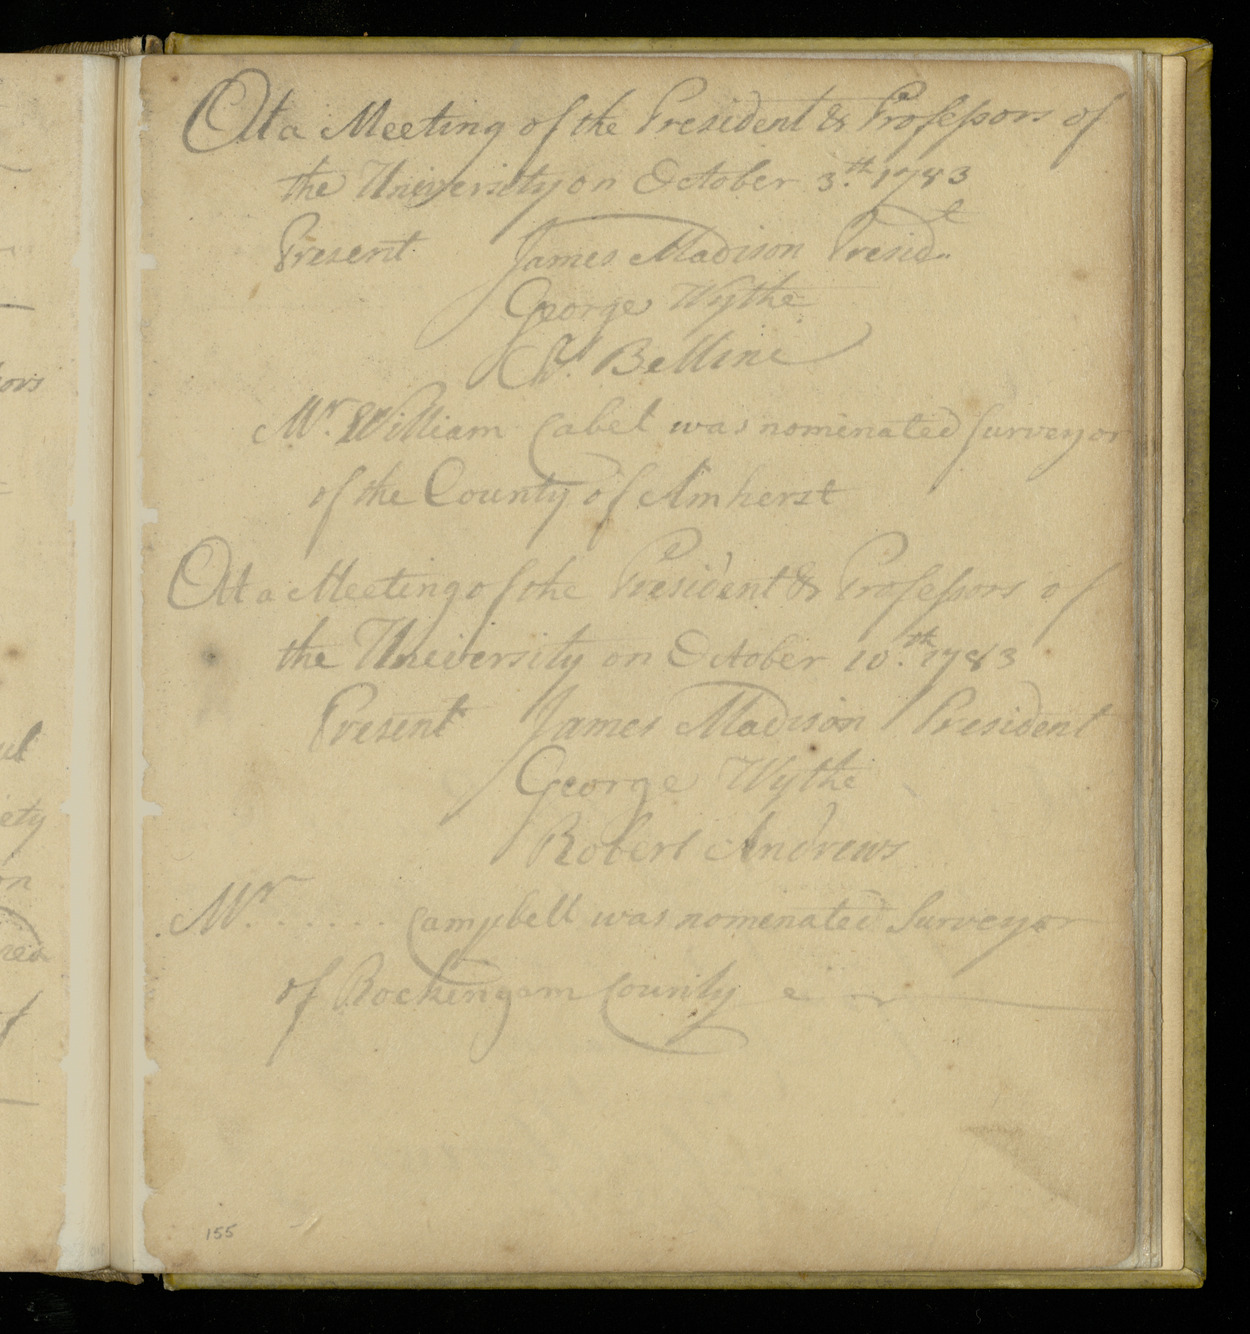 At a Meeting of the President & Professors of
the University on October 3.th 1783
Present James Madison Presid.t
George Wythe
C. Bellini
Mr. William Cabel was nominated Surveyor
of the County of Amherst
At a Meeting of the President & Professors of
the University on October 10.th 1783
Present James Madison President
George Wythe
Robert Andrews
Mr. ..... Campbell was nomenated Surveyor
of Rockengam County
155